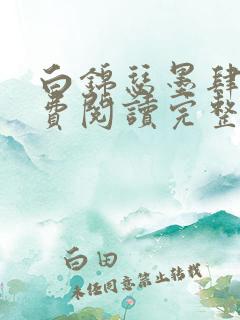 白錦瑟墨肆
費閱讀完整
白田
未经同意禁止转载